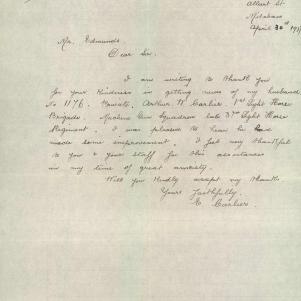 Albert St
April 30th
Mr. Edmunds.
Dear Sir.
I am writing to thank you
for your kindness in getting news of my husband
No 1176. Private. Arthur W. Carlier. 1st Light Horse
Brigade. Machine Gun Squadron late 3rd Light Horse
Regiment. I was pleased to hear he had
made some improvement. I feel very thankful
to you & your staff for this assistance
in my time of great anxiety.
Will you kindly accept my thanks
Yours Faithfully.
Carlier.